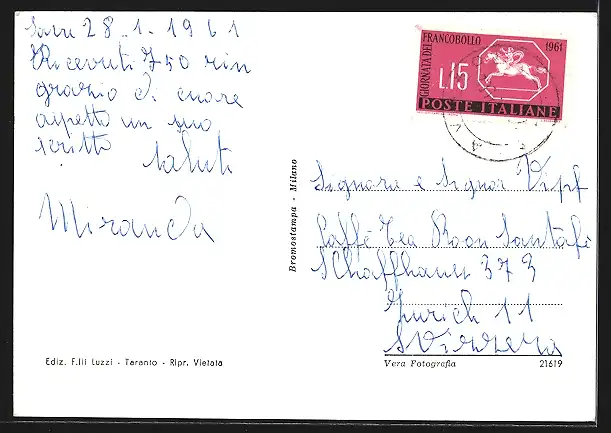 Sava 28-1-1961
Ricevuti 750 rin
grazio di cuore
aspetto un suo
scritto saluti
Miranda
GIORNATA DEL FRANCOBOLLO 1961
L.15
POSTE ITALIANE
Signora e Signor Vipf
Caffè Tea Room Santafè
Schaffhaus 373
Zurich 11
Svizzera
Bromostampa - Milano
Ediz. F.lli Luzzi - Taranto - Ripr. Vietata
Vera Fotografia 21619